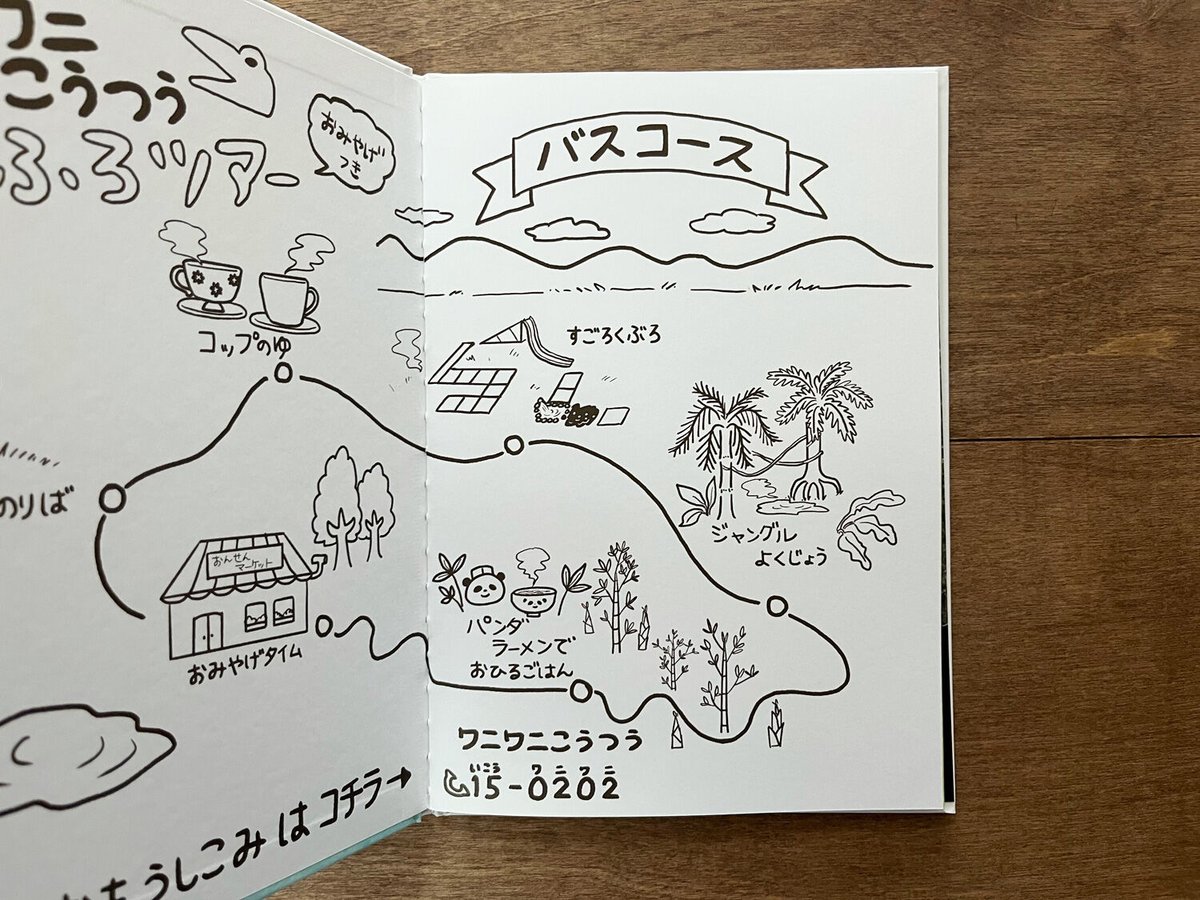 ワニ
こうつう
ふろツアー
おみやげ
つき
コップのゆ
のりば
おんせん
マーケット
おみやげタイム
うしこみはコチラ→
バスコース
すごろくぶろ
ジャングル
よくじょう
パンダ
ラーメンで
おひるごはん
ワニワニこうつう
いこう ワ ニ ワ ニ
15-0202